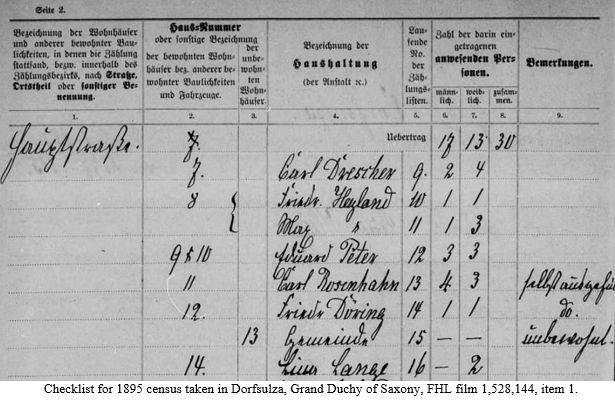 Seite 2.
Bezeichnung der Wohnhäuser und anderer bewohnter Baulichkeiten, in denen die Zählung stattfand, bezw. innerhalb des Zählungsbezirks, nach Straße, Ortstheil oder sonstiger Benennung.
Haus-Nummer oder sonstige Bezeichnung
der bewohnten Wohnhäuser bez. anderer bewohnter Baulichkeiten und Fahrzeuge.
der unbewohnten Wohnhäuser
Bezeichnung der Haushaltung (der Anstalt ꝛc.)
Laufende No. der Zählungslisten.
Zahl der darin eingetragenen anwesenden Personen.
männlich.
weiblich.
zusammen.
Bemerkungen.
1. 2. 3. 4. 5. 6. 7. 8. 9.
Hauptstraße. 7. Uebertrag 17 13 30
7. Carl Drescher 9. 2 4
8 Friedr. Heyland 10 1 1
Max " 11 1 3
9 & 10 Eduard Peter 12 3 3
11 Carl Rosenhahn 13 4 3 selbst ausgefü
12. Friedr Döring 14 1 1 do.
13 Gemeinde 15 — — unbewohnt.
14. Lina Lange 16 — 2
Checklist for 1895 census taken in Dorfsulza, Grand Duchy of Saxony, FHL film 1,528,144, item 1.